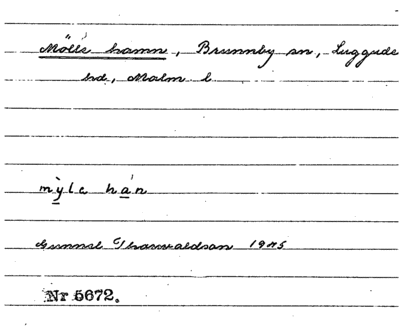 Mölle hamn, Brunnby sn, Luggude
hd, Malm l
mỳle hán
Gunnel Thorvaldson 1945
Nr 5672.